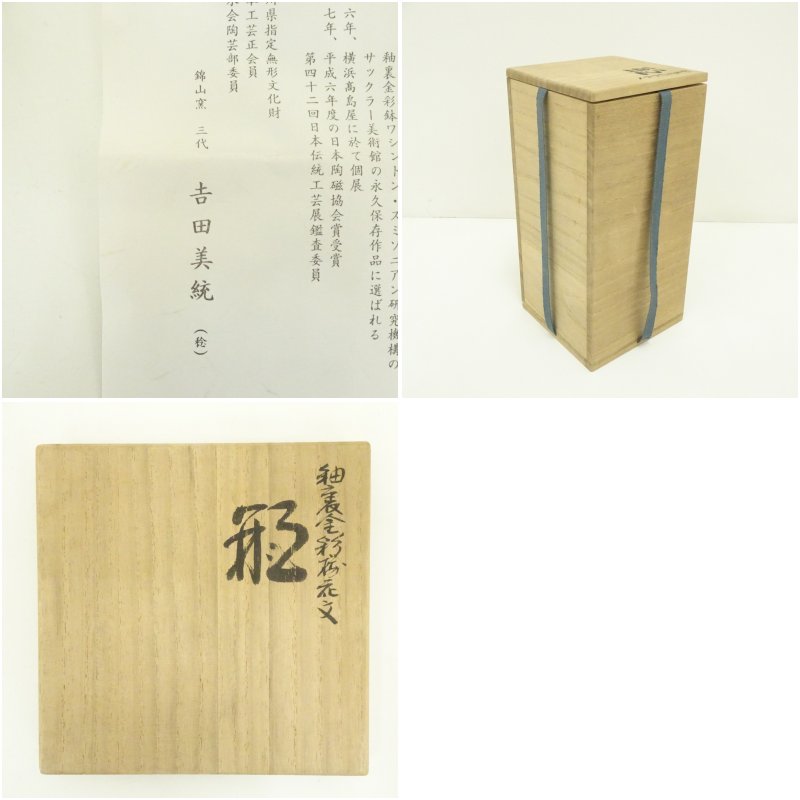 釉裏金彩鉢ワシントン・スミソニアン研究機構の
サックラー美術館の永久保存作品に選ばれる
六年、横浜高島屋に於て個展
七年、平成六年度の日本陶磁協会賞受賞
第四十二回日本伝統工芸展鑑査委員
川県指定無形文化財
工芸正会員
会陶芸部委員
錦山窯 三代
吉田美統
釉裏金彩椿花文
瓶